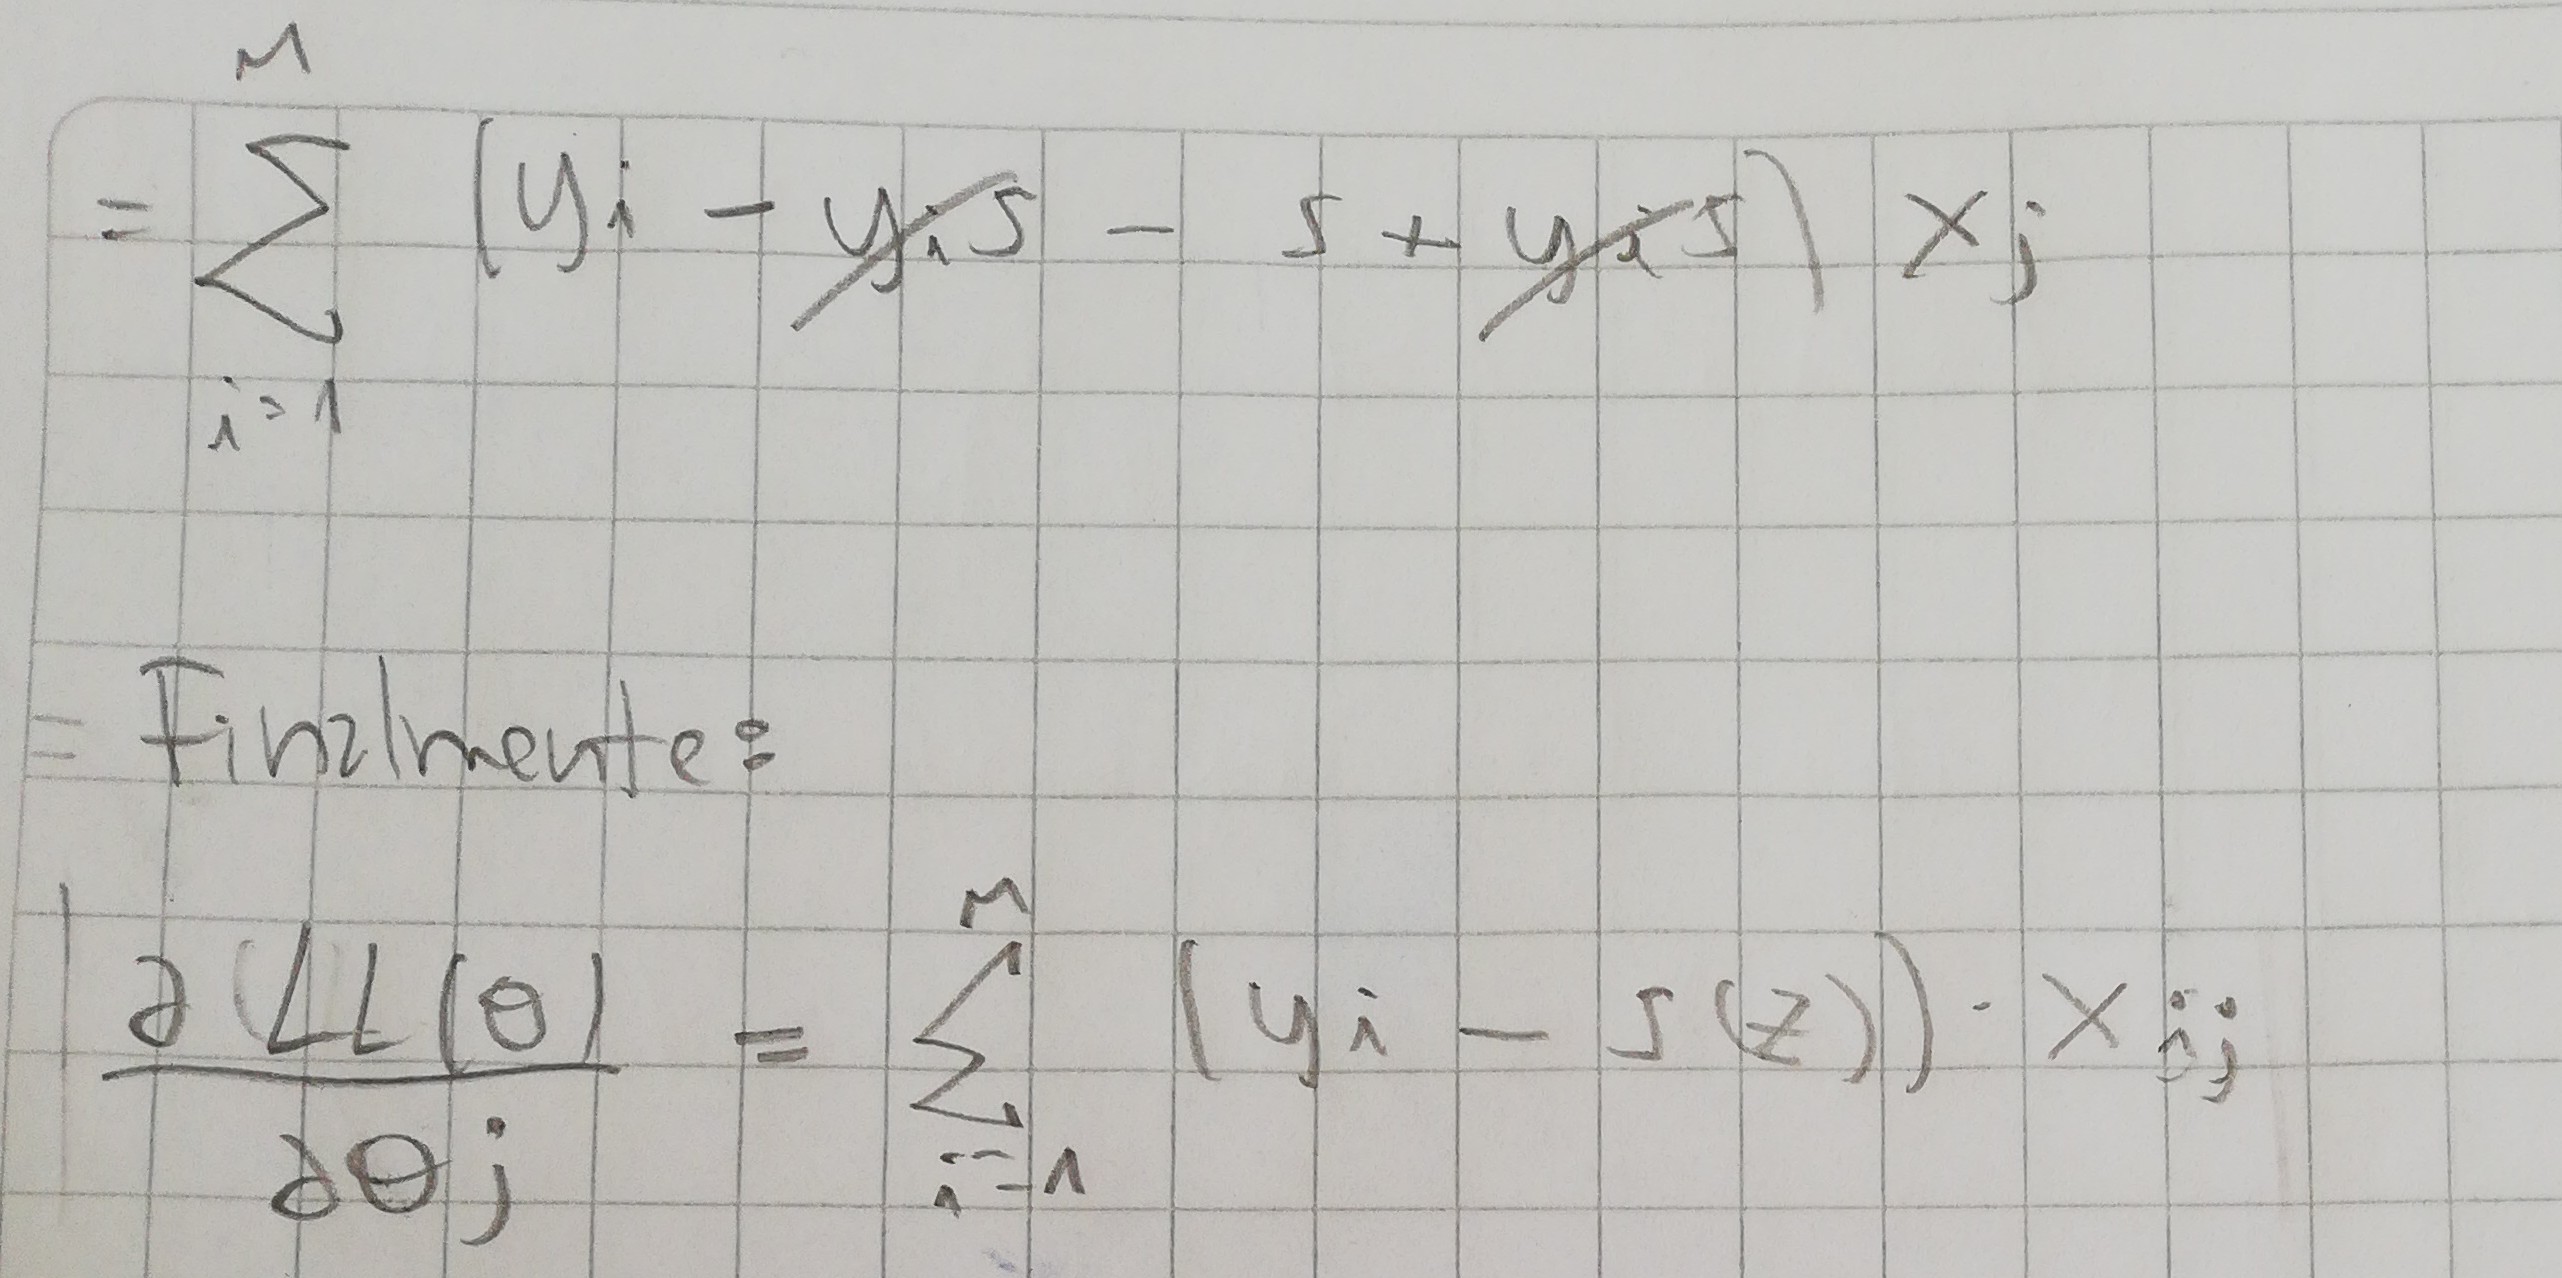 = \sum_{i=1}^{M} (y_i - y_i s - s + y_i s) x_j
= Finalmente:
\frac{∂ LL(θ)}{∂θ_j} = \sum_{i=1}^{M} (y_i - s(z)) · x_{ij}